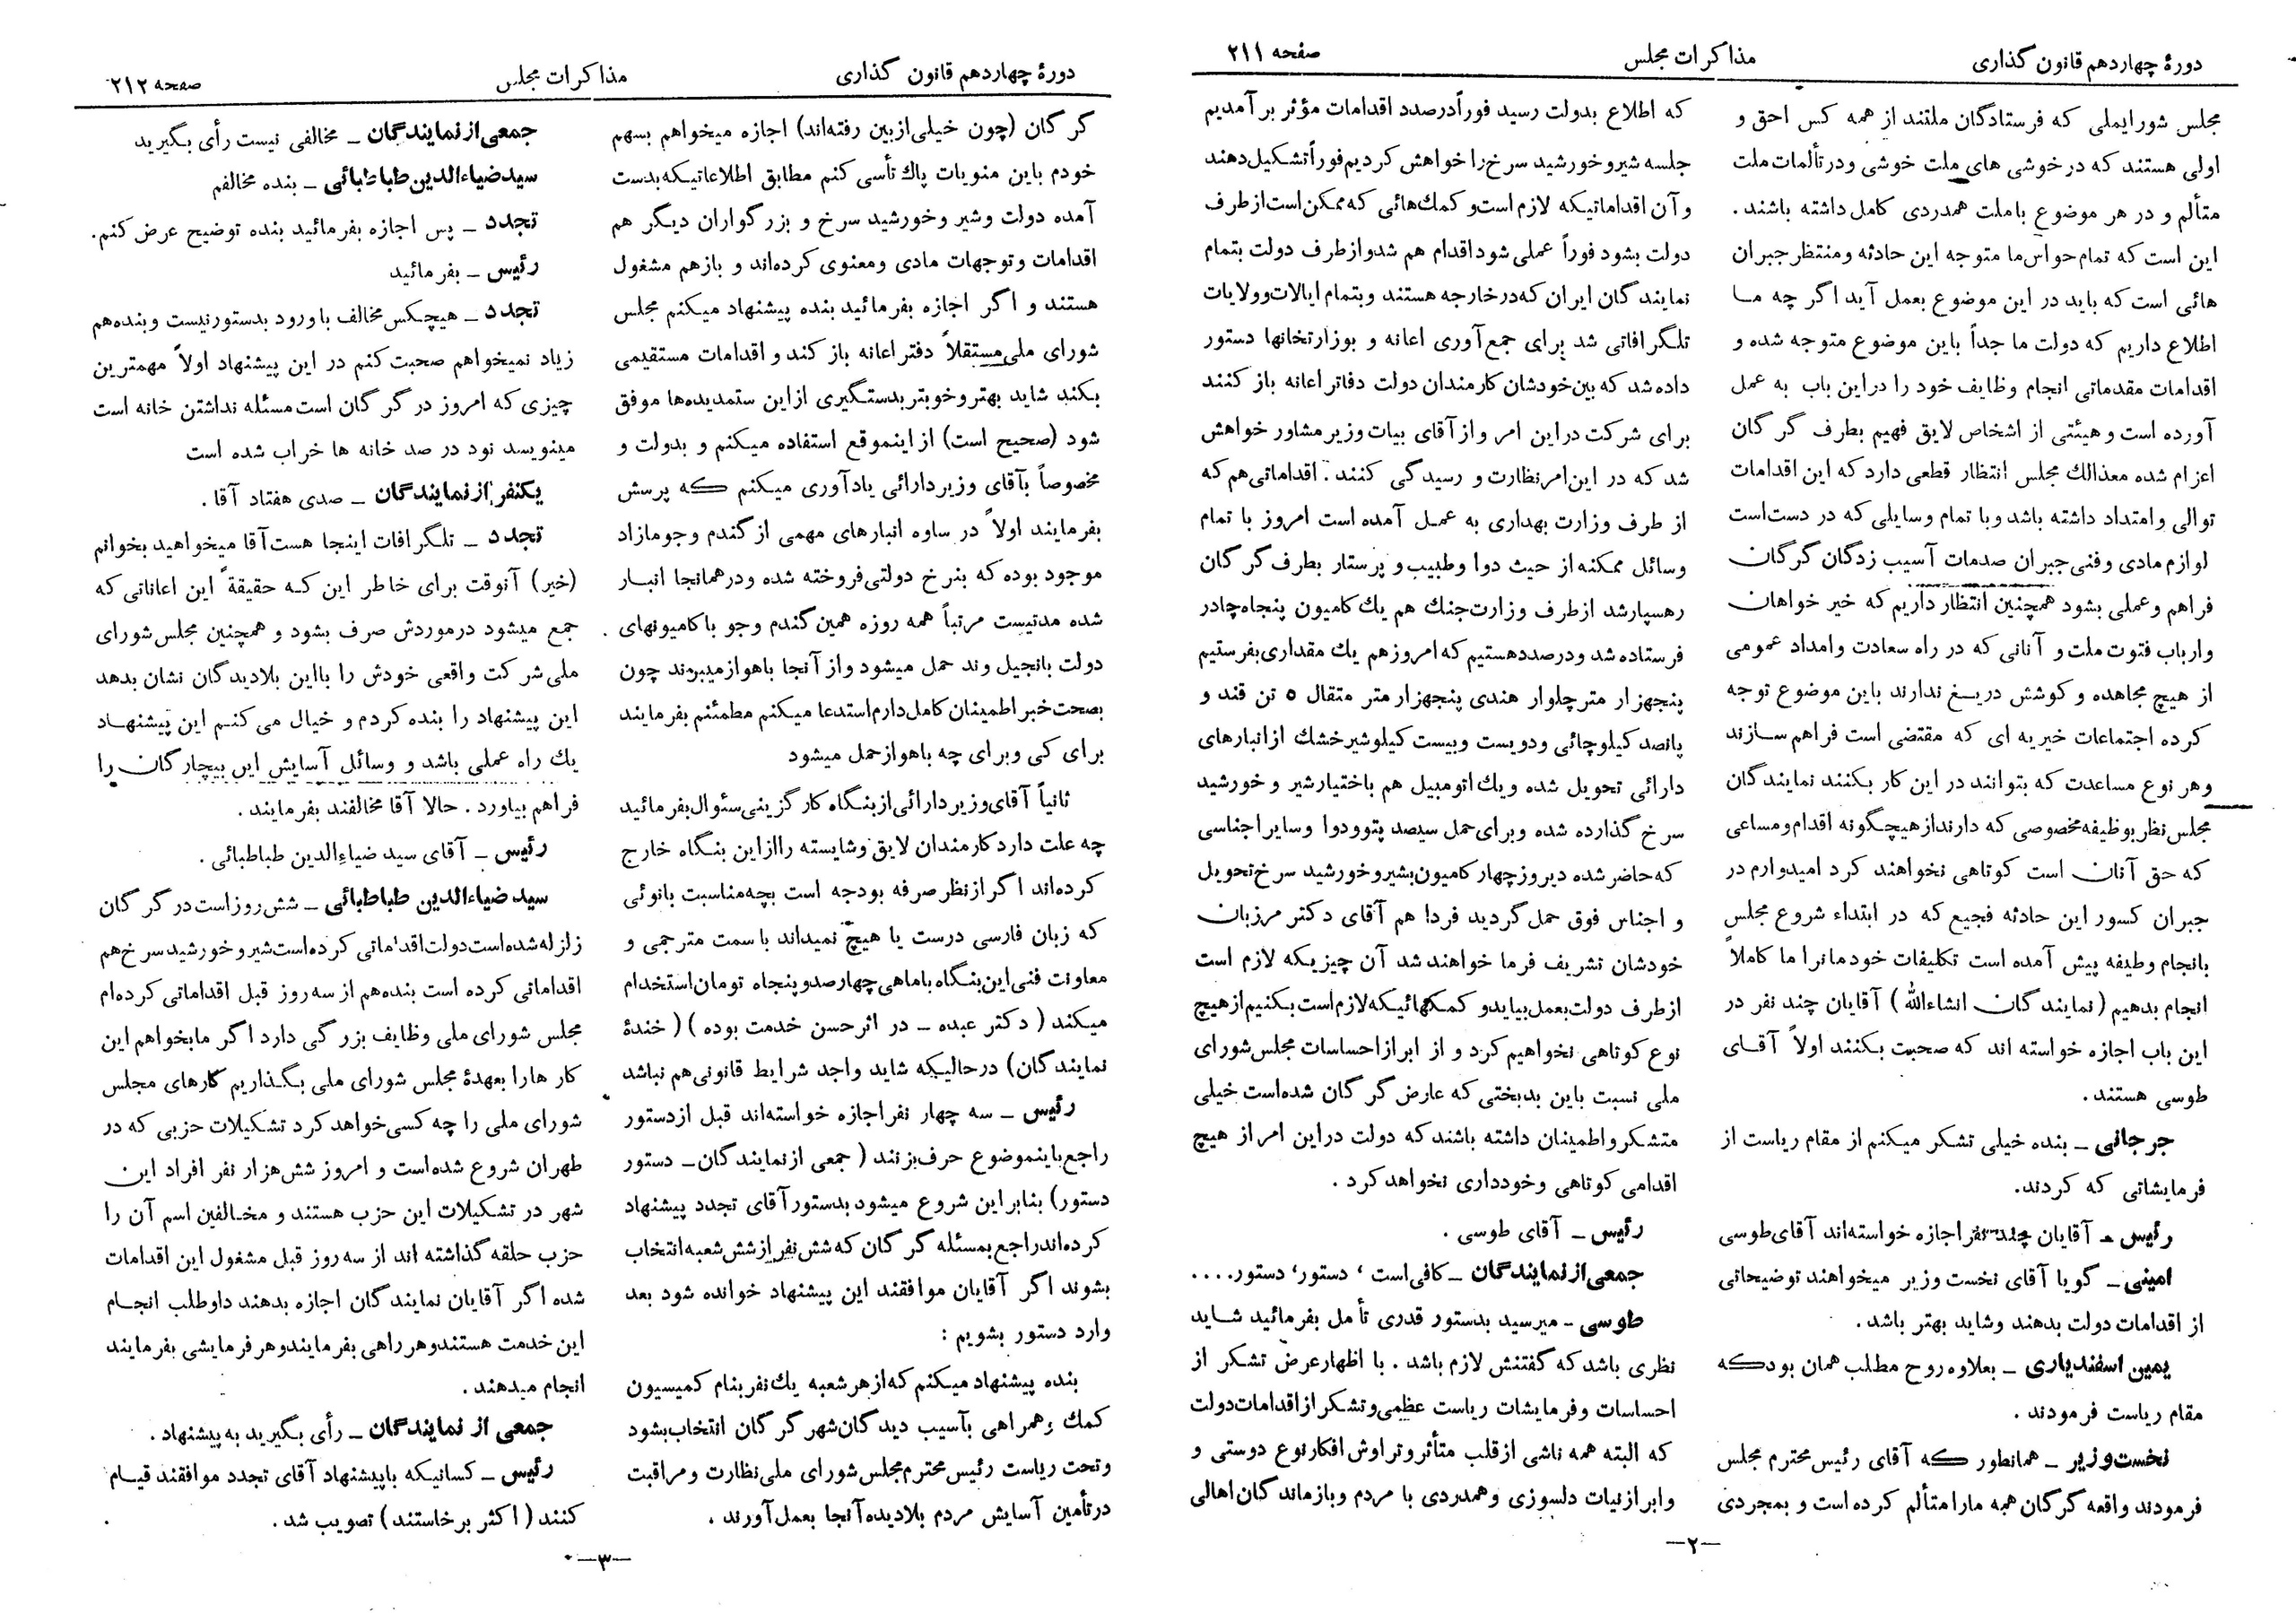 دورهٔ چهاردهم قانون گذاری
مذاکرات مجلس
صفحه ۲۱۱
مجلس شورایملی که فرستادگان ملتند از همه کس احق و
اولی هستند که در خوشی های ملت خوشی ودرتألمات ملت
متألم و در هر موضوع باملت همدردی کامل داشته باشند.
این است که تمام حواس ما متوجه این حادثه ومنتظر جبران
هائی است که باید در این موضوع بعمل آید اگر چه ما
اطلاع داریم که دولت ما جداً باین موضوع متوجه شده و
اقدامات مقدماتی انجام وظایف خود را دراین باب به عمل
آورده است و هیئتی از اشخاص لایق فهیم بطرف گرگان
اعزام شده معذالك مجلس انتظار قطعی دارد که این اقدامات
توالی وامتداد داشته باشد وبا تمام وسایلی که در دست است
لوازم مادی وفنی جبران صدمات آسیب زدگان گرگان
فراهم وعملی بشود همچنین انتظار داریم که خیر خواهان
وارباب فتوت ملت و آنانی که در راه سعادت وامداد عمومی
از هیچ مجاهده و کوشش دریغ ندارند باین موضوع توجه
کرده اجتماعات خیریه ای که مقتضی است فراهم سازند
وهر نوع مساعدت که بتوانند در این کار بکنند نمایندگان
مجلس نظر بوظیفه مخصوصی که دارند از هیچگونه اقدام ومساعی
که حق آنان است کوتاهی نخواهند کرد امیدوارم در
جبران کسور این حادثه فجیع که در ابتداء شروع مجلس
بانجام وظیفه پیش آمده است تکلیفات خودمانرا ما کاملاً
انجام بدهیم (نمایندگان انشاءالله) آقایان چند نفر در
این باب اجازه خواسته اند که صحبت بکنند اولاً آقای
طوسی هستند.
جرجانی ـ بنده خیلی تشکر میکنم از مقام ریاست از
فرمایشاتی که کردند.
رئیس ـ آقایان چند نفر اجازه خواسته‌اند آقای طوسی
امینی ـ گویا آقای نخست وزیر میخواهند توضیحاتی
از اقدامات دولت بدهند وشاید بهتر باشد.
یمین اسفندیاری ـ بعلاوه روح مطلب همان بود که
مقام ریاست فرمودند.
نخست‌وزیر ـ همانطور که آقای رئیس محترم مجلس
فرمودند واقعه گرگان همه مارا متألم کرده است و بمجردی
که اطلاع بدولت رسید فوراً درصدد اقدامات مؤثر بر آمدیم
جلسه شیروخورشید سرخ را خواهش کردیم فوراً تشکیل دهند
و آن اقداماتیکه لازم است و کمك هائی که ممکن است از طرف
دولت بشود فوراً عملی شود اقدام هم شد و از طرف دولت بتمام
نمایندگان ایران که در خارجه هستند وبتمام ایالات وولایات
تلگرافاتی شد برای جمع آوری اعانه و بوزارتخانها دستور
داده شد که بین خودشان کارمندان دولت دفاتر اعانه باز کنند
برای شرکت در این امر و از آقای بیات وزیر مشاور خواهش
شد که در این امر نظارت و رسیدگی کنند. اقداماتی هم که
از طرف وزارت بهداری به عمل آمده است امروز با تمام
وسائل ممکنه از حیث دوا وطبیب و پرستار بطرف گرگان
رهسپار شد از طرف وزارت جنك هم یك کامیون پنجاه چادر
فرستاده شد ودرصدد هستیم که امروز هم یك مقداری بفرستیم
پنجهزار متر چلوار هندی پنجهزار متر متقال ۵ تن قند و
پانصد کیلو چائی ودویست وبیست کیلو شیر خشك از انبارهای
دارائی تحویل شده ویك اتومبیل هم باختیار شیر و خورشید
سرخ گذارده شده وبرای حمل سیصد پتوو دوا وسایر اجناسی
که حاضر شده دیروز چهار کامیون بشیر وخورشید سرخ تحویل
و اجناس فوق حمل گردید فردا هم آقای دکتر مرزبان
خودشان تشریف فرما خواهند شد آن چیزیکه لازم است
از طرف دولت بعمل بیاید و کمکهائیکه لازم است بکنیم از هیچ
نوع کوتاهی نخواهیم کرد و از ابراز احساسات مجلس شورای
ملی نسبت باین بدبختی که عارض گرگان شده است خیلی
متشکر واطمینان داشته باشند که دولت دراین امر از هیچ
اقدامی کوتاهی وخودداری نخواهد کرد.
رئیس ـ آقای طوسی.
جمعی از نمایندگان ـ کافی است ، دستور، دستور....
طوسی ـ میرسید بدستور قدری تأمل بفرمائید شاید
نظری باشد که گفتنش لازم باشد. با اظهار عرض تشکر از
احساسات وفرمایشات ریاست عظمی و تشکر از اقدامات دولت
که البته همه ناشی از قلب متأثر و تراوش افکار نوع دوستی و
وابراز نیات دلسوزی وهمدردی با مردم وبازماندگان اهالی
ـ۲ـ
دورهٔ چهاردهم قانون گذاری
مذاکرات مجلس
صفحه ۲۱۲
گرگان (چون خیلی ازبین رفته‌اند) اجازه میخواهم بسهم
خودم باین منویات پاك تأسی کنم مطابق اطلاعاتیکه بدست
آمده دولت وشیر وخورشید سرخ و بزرگواران دیگر هم
اقدامات وتوجهات مادی ومعنوی کرده‌اند و بازهم مشغول
هستند و اگر اجازه بفرمائید بنده پیشنهاد میکنم مجلس
شورای ملی مستقلاً دفتر اعانه باز کند و اقدامات مستقیمی
بکند شاید بهتر وخوبتر بدستگیری از این ستمدیده‌ها موفق
شود (صحیح است) از اینموقع استفاده میکنم و بدولت و
مخصوصاً بآقای وزیر دارائی یادآوری میکنم که پرسش
بفرمایند اولاً در ساوه انبارهای مهمی از گندم وجو مازاد
موجود بوده که بنرخ دولتی فروخته شده ودرهمانجا انبار
شده مدتیست مرتباً همه روزه همین گندم وجو با کامیونهای
دولت بانجیل وند حمل میشود واز آنجا باهواز میبرند چون
بصحت خبر اطمینان کامل دارم استدعا میکنم مطمئنم بفرمایند
برای کی وبرای چه باهواز حمل میشود
ثانیاً آقای وزیر دارائی از بنگاه کارگزینی سئوال بفرمائید
چه علت دارد کارمندان لایق وشایسته را از این بنگاه خارج
کرده‌اند اگر از نظر صرفه بودجه است بچه مناسبت بانوئی
که زبان فارسی درست یا هیچ نمیداند با سمت مترجمی و
معاونت فنی این بنگاه با ماهی چهارصدو پنجاه تومان استخدام
میکند (دکتر عبده ـ در اثر حسن خدمت بوده) (خندهٔ
نمایندگان) درحالیکه شاید واجد شرایط قانونی هم نباشد
رئیس ـ سه چهار نفر اجازه خواسته‌اند قبل از دستور
راجع باینموضوع حرف بزنند (جمعی از نمایندگان ـ دستور
دستور) بنابر این شروع میشود بدستور آقای تجدد پیشنهاد
کرده‌اند راجع بمسئله گرگان که شش نفر از شش شعبه انتخاب
بشوند اگر آقایان موافقند این پیشنهاد خوانده شود بعد
وارد دستور بشویم :
بنده پیشنهاد میکنم که از هر شعبه یك نفر بنام کمیسیون
کمك و همراهی بآسیب دیدگان شهر گرگان انتخاب بشود
وتحت ریاست رئیس محترم مجلس شورای ملی نظارت و مراقبت
در تأمین آسایش مردم بلادیده آنجا بعمل آورند.
جمعی از نمایندگان ـ مخالفی نیست رأی بگیرید
سید ضیاءالدین طباطبائی ـ بنده مخالفم
تجدد ـ پس اجازه بفرمائید بنده توضیح عرض کنم.
رئیس ـ بفرمائید
تجدد ـ هیچکس مخالف با ورود بدستور نیست و بنده هم
زیاد نمیخواهم صحبت کنم در این پیشنهاد اولاً مهمترین
چیزی که امروز در گرگان است مسئله نداشتن خانه است
مینویسد نود در صد خانه ها خراب شده است
یکنفر از نمایندگان ـ صدی هفتاد آقا.
تجدد ـ تلگرافات اینجا هست آقا میخواهید بخوانم
(خیر) آنوقت برای خاطر این که حقیقةً این اعاناتی که
جمع میشود درموردش صرف بشود و همچنین مجلس شورای
ملی شرکت واقعی خودش را بااین بلادیدگان نشان بدهد
این پیشنهاد را بنده کردم و خیال می کنم این پیشنهاد
یك راه عملی باشد و وسائل آسایش این بیچارگان را
فراهم بیاورد. حالا آقا مخالفند بفرمایند.
رئیس ـ آقای سید ضیاءالدین طباطبائی.
سید ضیاءالدین طباطبائی ـ شش روز است در گرگان
زلزله شده است دولت اقداماتی کرده است شیر و خورشید سرخ هم
اقداماتی کرده است بنده هم از سه روز قبل اقداماتی کرده‌ام
مجلس شورای ملی وظایف بزرگی دارد اگر ما بخواهم این
کار هارا بعهدهٔ مجلس شورای ملی بگذاریم کارهای مجلس
شورای ملی را چه کسی خواهد کرد تشکیلات حزبی که در
طهران شروع شده است و امروز شش هزار نفر افراد این
شهر در تشکیلات این حزب هستند و مخالفین اسم آن را
حزب حلقه گذاشته اند از سه روز قبل مشغول این اقدامات
شده اگر آقایان نمایندگان اجازه بدهند داوطلب انجام
این خدمت هستند و هر راهی بفرمایند و هر فرمایشی بفرمایند
انجام میدهند.
جمعی از نمایندگان ـ رأی بگیرید به پیشنهاد.
رئیس ـ کسانیکه باپیشنهاد آقای تجدد موافقند قیام
کنند (اکثر برخاستند) تصویب شد.
ـ۳ـ